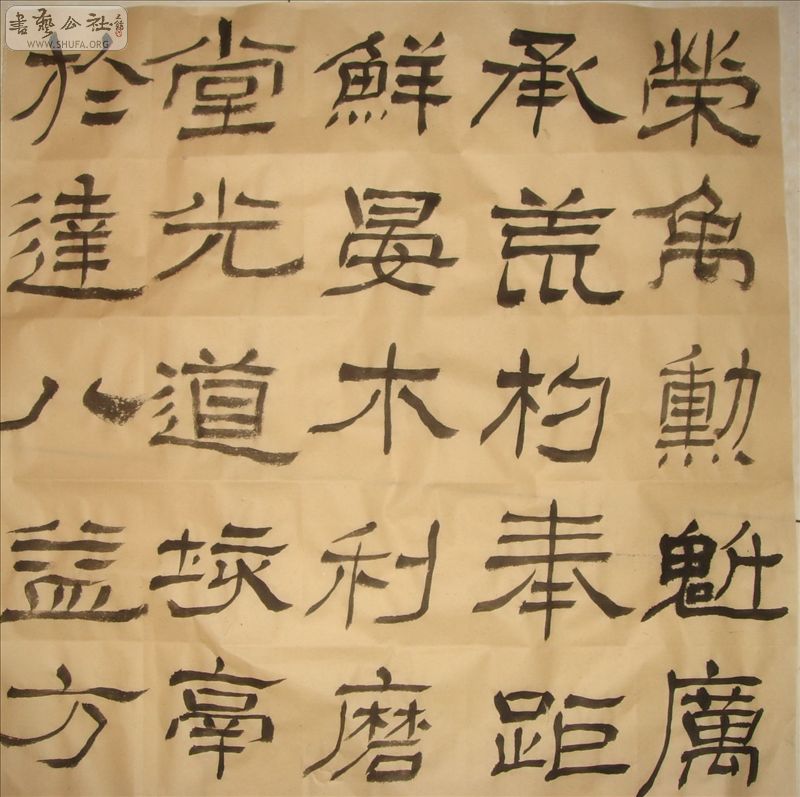 書藝公社
WWW.SHUFA.ORG
榮勳魁厲
承荒杓奉距
鮮晏木利磨
堂光道
於達八益方